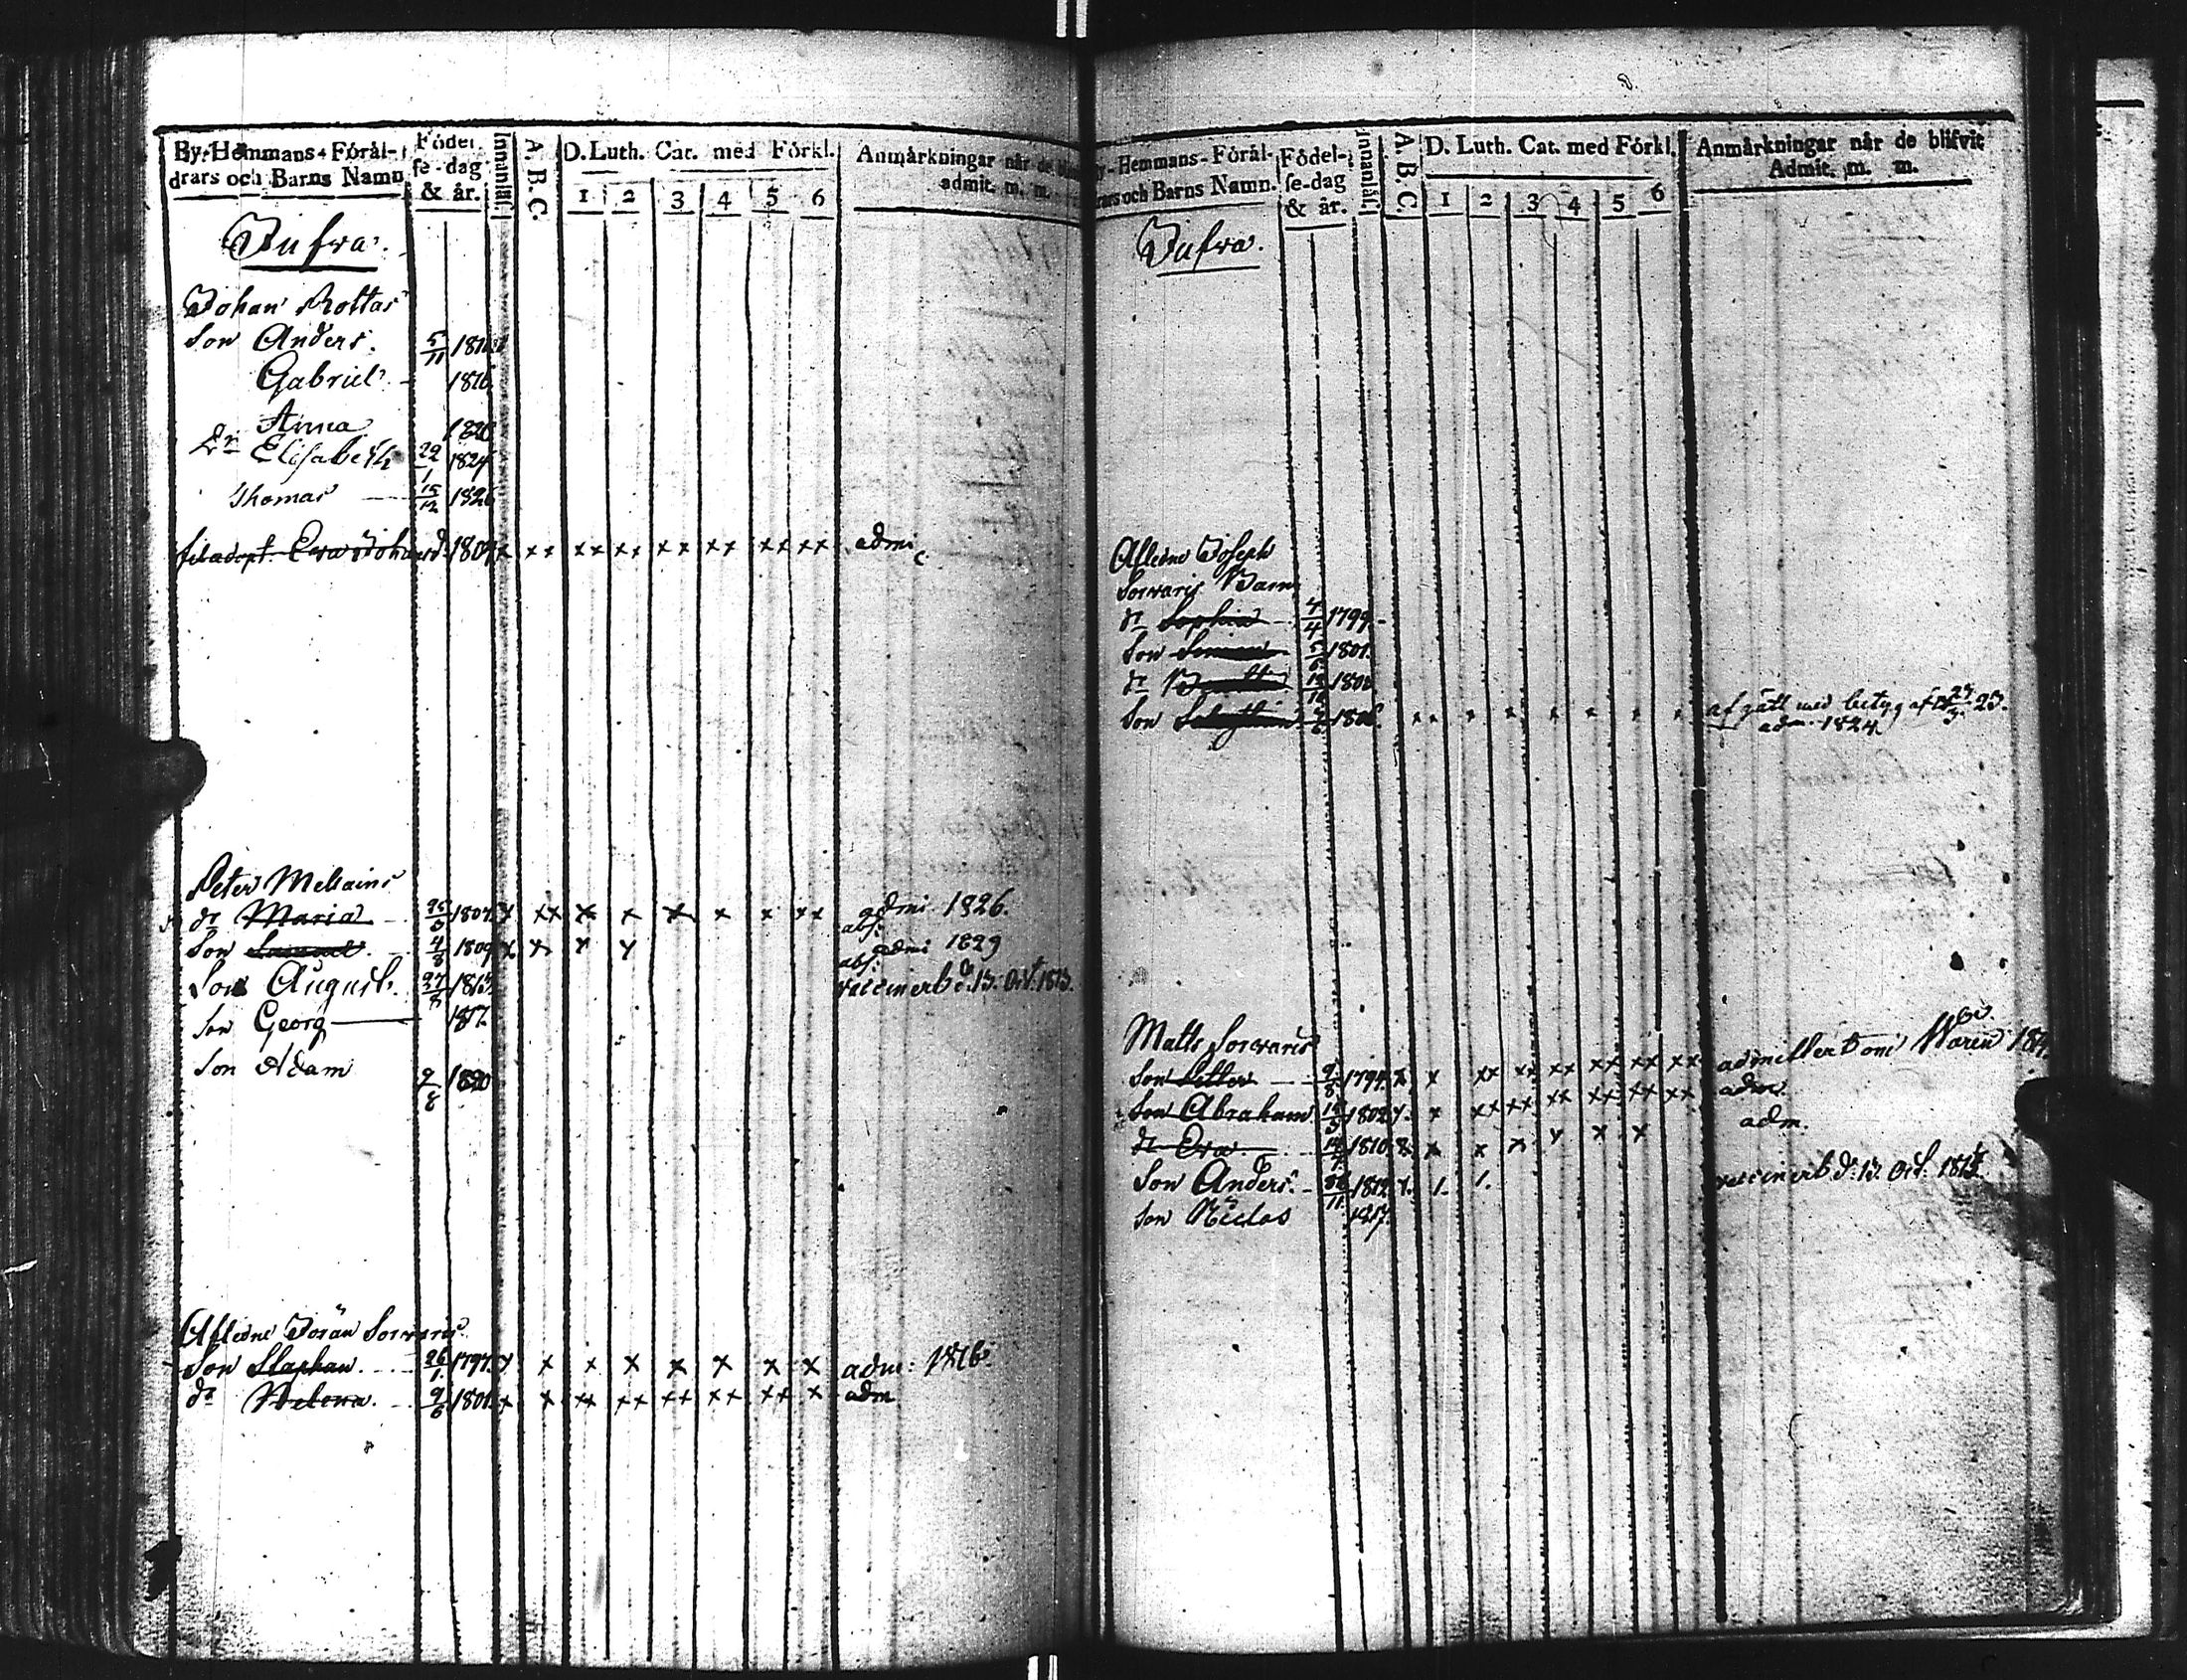 By-Hemmans-Föräl-
drars och Barns Namn
Födel-
se-dag
& år.
Innanläs.
A. B. C.
D. Luth. Cat. med Förkl.
1 2 3 4 5 6
Anmärkningar när de
admit. m. m.
Jufva.
Johan Rottas
Son Anders. 5/11 181
Gabriel. 1816
Anna
Dr Elisabeth 22/1 1824
Thomas 15/12 1826
Eva Johansd. 1804 x xx xx xx xx xx xx xx admi
Peter Mellains
dr Maria 25/ 1807. x xx x x x x x xx admi 1826.
abs:
Son Samuel. 4/8 1809 x x x x admi 1829
abs:
Son August. 27/8 1813 vaccinerb d. 13. Oct. 1813.
Son Georg 1817.
Son Adam 9/8 1820
Afledne Jöran Sorvaris
Son Staphan. 26/1. 1797. x x x x x x x x adm: 1816.
dr Helena. 9/6 1801. x x xx xx xx xx xx x adm
By-Hemmans-Föräl-
drars och Barns Namn.
Födel-
se-dag
& år.
Innanläs.
A. B. C.
D. Luth. Cat. med Förkl.
1 2 3 4 5 6
Anmärkningar när de blifvit
Admit. m. m.
Jufva.
Afledne Joseph
Sorvaris Barn
dr Sophia 4/4 1799.
Son Simon 5/6 1801.
dr
Son 1806. xx x x x x x x afgått med betyg af d. 23.
adm. 1824
Matts Sorvaris
Son Petter 9/ 1794. x x xx xx xx xx xx xx admitterb oni
Son Abraham 18/ 1802 x. x xx xx xx xx xx xx adm.
dr Eva 1810. x x x x x x x adm.
Son Anders. /11. 1812 x. 1. 1. vaccinerb d. 13. Oct. 1813.
Son Niclas 1817.